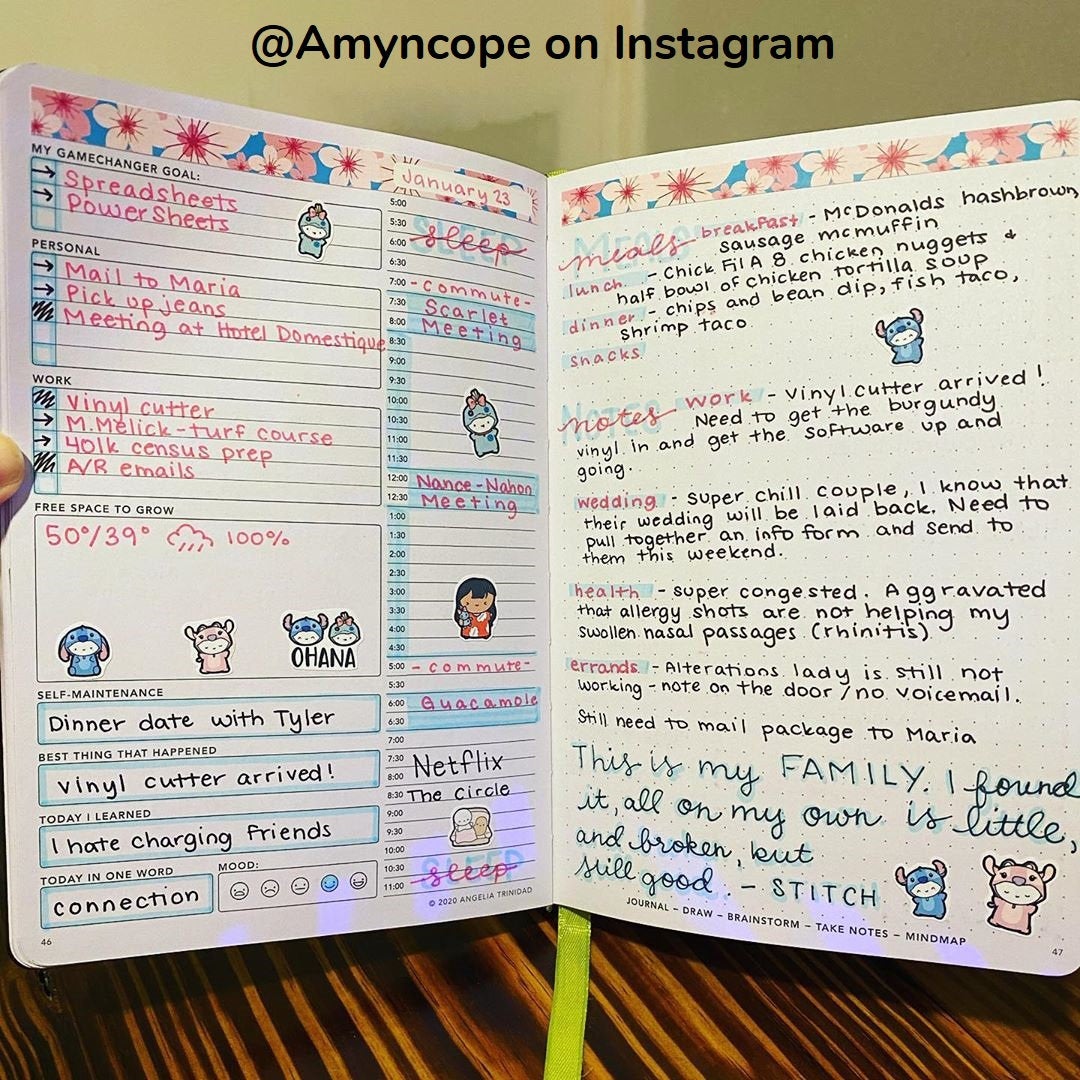 @Amyncope on Instagram
MY GAMECHANGER GOAL:
Spreadsheets
PowerSheets
PERSONAL
Mail to Maria
Pick up jeans
Meeting at Hotel Domestique
WORK
Vinyl cutter
M.Melick-turf course
401k census prep
A/R emails
FREE SPACE TO GROW
50°/39° 100%
OHANA
SELF-MAINTENANCE
Dinner date with Tyler
BEST THING THAT HAPPENED
vinyl cutter arrived!
TODAY I LEARNED
I hate charging friends
TODAY IN ONE WORD
connection
MOOD:
46
January 23
5:00
5:30 SLEEP
6:00 sleep
6:30
7:00 -commute-
7:30 Scarlet
8:00 Meeting
8:30
9:00
9:30
10:00
10:30
11:00
11:30
12:00 Nance-Nahon
12:30 Meeting
1:00
1:30
2:00
2:30
3:00
3:30
4:00
4:30
5:00 -commute-
5:30
6:00 Guacamole
6:30
7:00
7:30 Netflix
8:00
8:30 The Circle
9:00
9:30
10:00
10:30 SLEEP sleep
11:00
© 2020 ANGELIA TRINIDAD
MEALS
meals breakfast - McDonalds hashbrown,
sausage mcmuffin
lunch - Chick Fil A 8 chicken nuggets &
half bowl of chicken tortilla soup
dinner - chips and bean dip, fish taco,
shrimp taco
snacks
NOTES
notes work - Vinyl cutter arrived!
Need to get the burgundy
vinyl in and get the software up and
going.
wedding - super chill couple, I know that
their wedding will be laid back. Need to
pull together an info form and send to
them this weekend.
health - super congested. Aggravated
that allergy shots are not helping my
swollen nasal passages (rhinitis).
errands - Alterations lady is still not
working - note on the door / no voicemail.
Still need to mail package to Maria
This is my FAMILY. I found
it, all on my own is little,
and broken, but
still good. - STITCH
JOURNAL – DRAW – BRAINSTORM – TAKE NOTES – MINDMAP
47